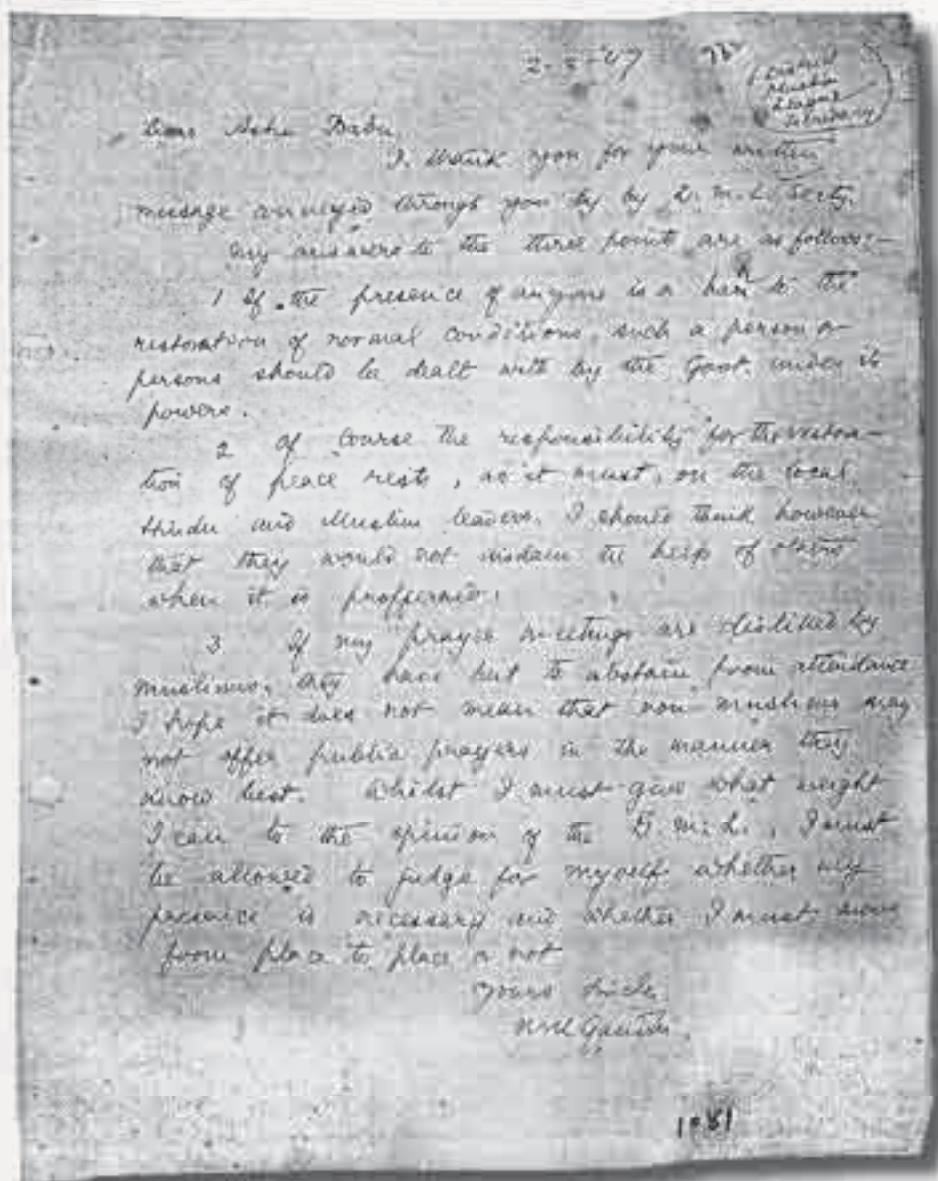 2-2-47
District
Muslim
League
Secretary
Dear Ashu Babu,
I thank you for your written
message conveyed through you by by D.M.L. Secty.
My answers to the three points are as follows:—
1 If the presence of anyone is a bar to the
restoration of normal conditions, such a person or
persons should be dealt with by the Govt. under its
powers.
2 Of course the responsibility for the restora-
tion of peace rests, as it must, on the local
Hindu and Muslim leaders. I should think however
that they would not disdain the help of others
when it is proffered.
3 If my prayer meetings are disliked by
Muslims, they have but to abstain from attendance
I hope it does not mean that non muslims may
not offer public prayers in the manner they
know best. Whilst I must give what weight
I can to the opinion of the D.M.L., I must
be allowed to judge for myself whether my
presence is necessary and whether I must move
from place to place or not
Yours
MK Gandhi
1081